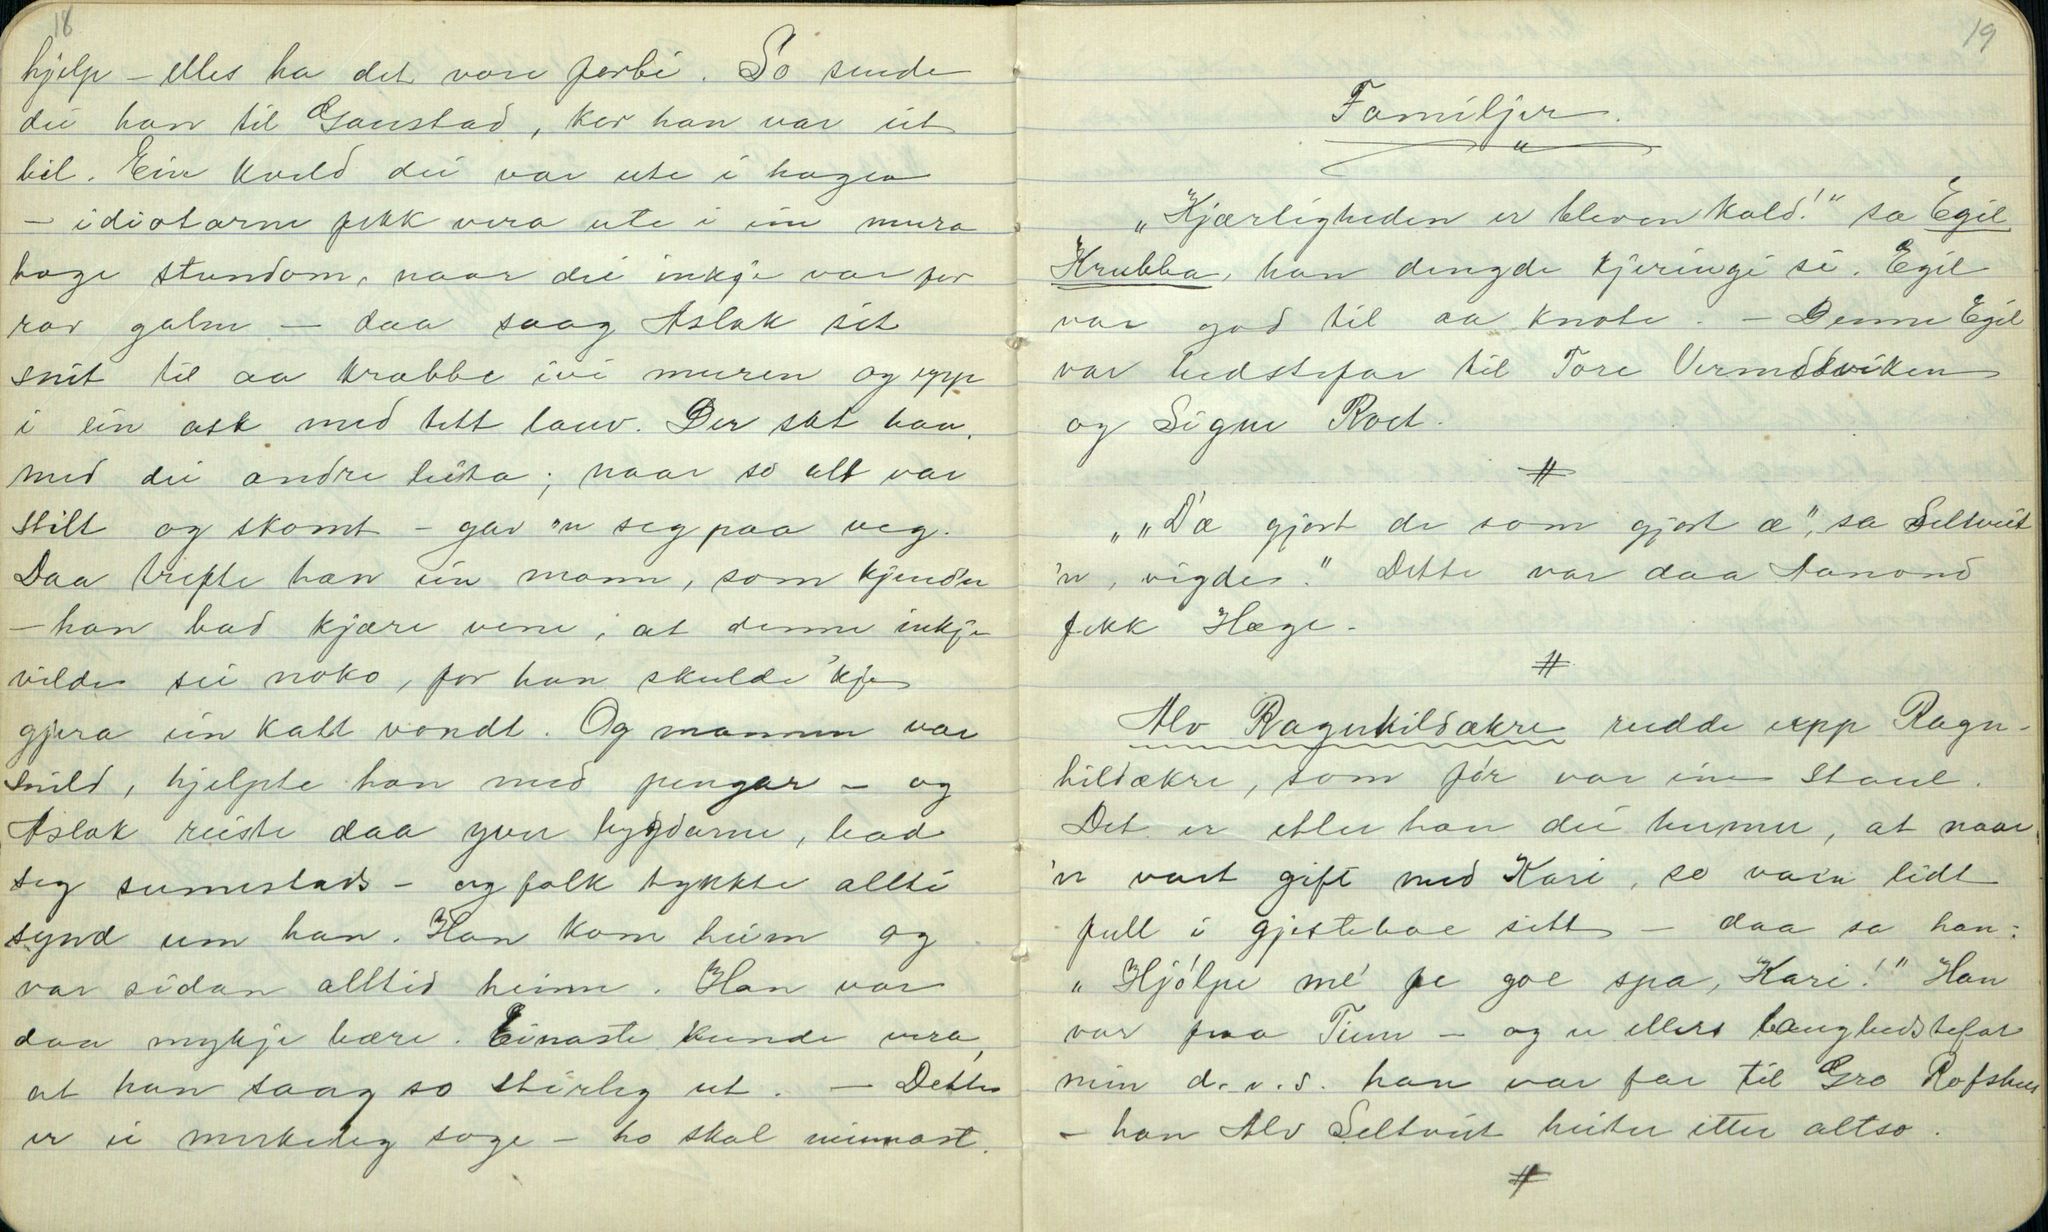 18
hjelp - elles ha det vore forbi. So sende
dei han til Gaustad, kor han var eit
bil. Ein kveld dei var ute i hagen
- idiotarne fekk vera ute i ein mura
hage stundom, naar dei inkje var for
rav galne - daa saag Aslak sit
snit til aa krabbe ivi muren og upp
i ein ask med tett lauv. Der sat han,
med dei andre leita; naar so alt var
stilt og skomt - gav 'n seg paa veg.
Daa trefte han ein mann, som kjende 'n
- han bad kjære vene, at denne inkje
vilde sei noko, for han skulde 'kje
gjera ein katt vondt. Og mannen var
snild, hjelpte han med pengar - og
Aslak reiste daa yver bygdarne, bad
seg sumestads - og folk tykkte allti
synd um han. Han kom heim og
var sidan alltid heime. Han var
daa mykje bære. Einaste kunde vera,
at han saag so stirleg ut. - Dette
er ei merkeleg soge - ho skal minnast.
19
Familjer.
"Kjærligheden er bleven kold!" sa Egil
Krubba, han dengde kjeringi si. Egil
var god til aa knote. - Denne Egil
var bedstefar til Tore Vermodviken
og Signe Roet.
#
"D'æ gjort de som gjort æ", sa Seltveit
'n, vigdes." Dette var daa Aanond
fekk Hæge.
#
Alv Ragnhildækre rudde upp Ragn-
hildækre, som før var ein staul.
Det er etter han dei hermer, at naar
'n vart gift med Kari, so va 'n lidt
full i gjesteboe sitt - daa sa han:
"Hjólpe mé pe goe spa, Kari!" Han
var fraa Tiun - og er ellers langbedstefar
min d.v.s. han var far til Gro Rofshus
- han Alv Seltveit heiter etter altso.
#